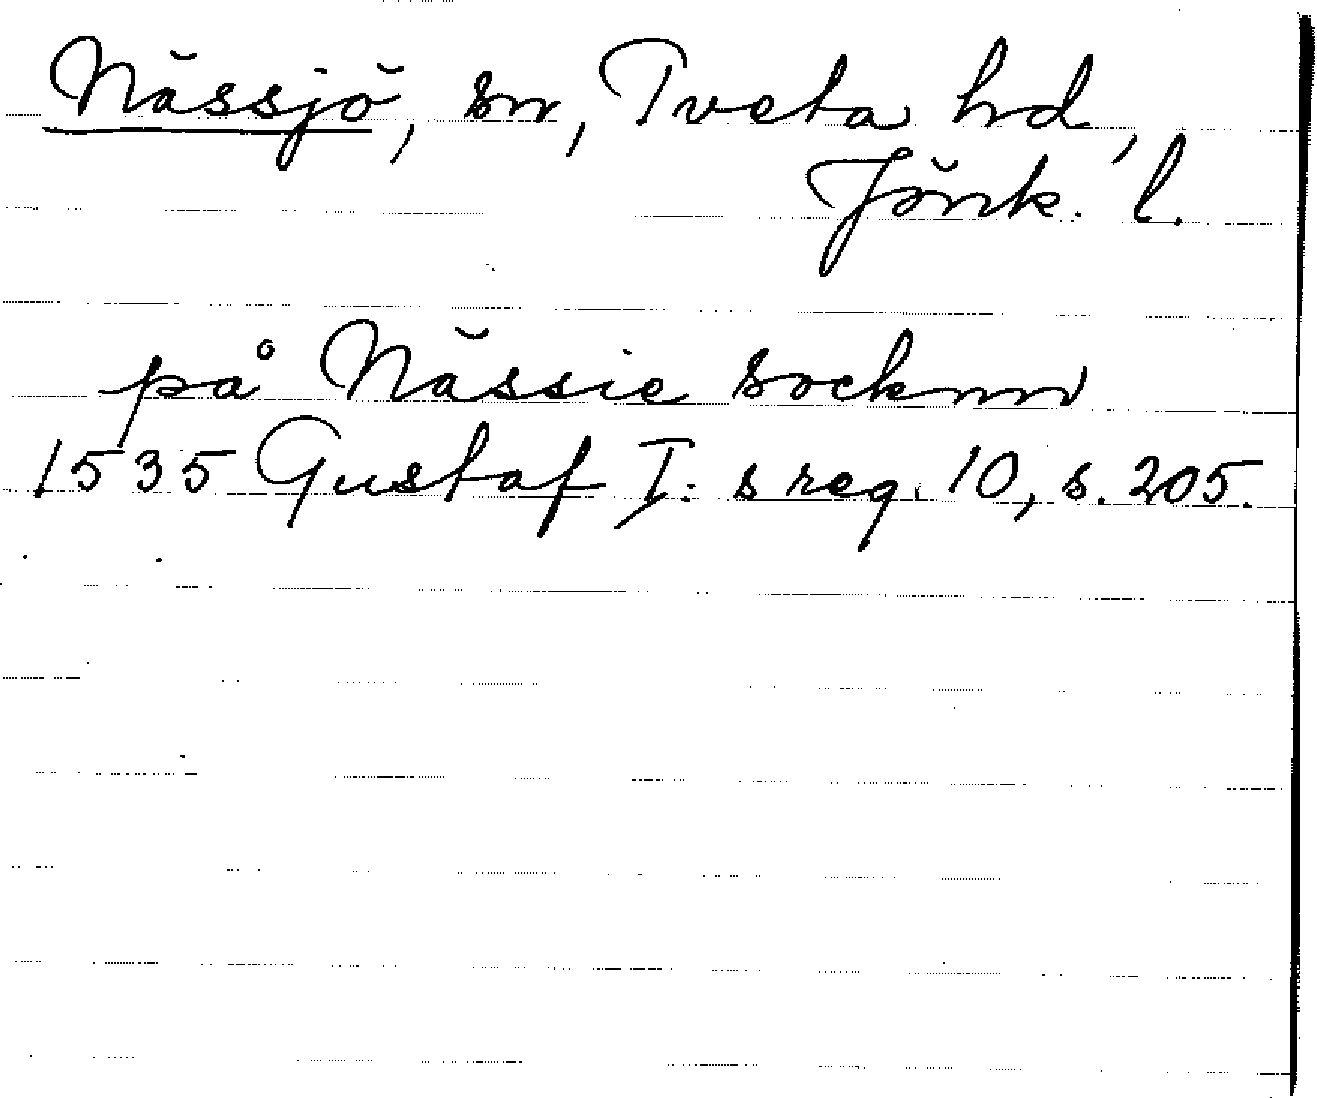 Nässjö, sn, Tveta hd,
Jönk. l.
på Nässie socknn
1535 Gustaf I:s reg. 10, s. 205.